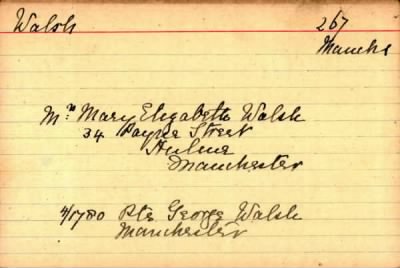 Walsh
267
Manchs
Mrs Mary Elizabeth Walsh
34 Payne Street
Hulme
Manchester
4/1780 Pte George Walsh
Manchester